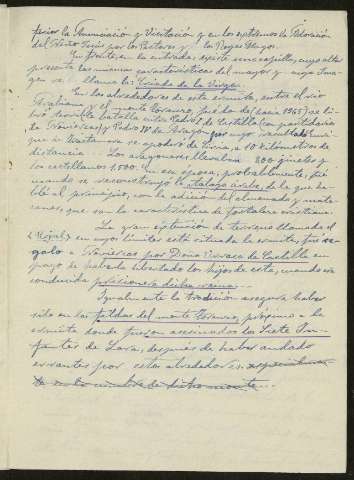 terior la Anunciación y Visitación y en los extremos la Adoración
del Niño Jesús por los Pastores y los Reyes Magos.
En frente, en la entrada, existe una capilla, cuyo altar
presenta las mismas características del mayor y cuya Ima-
gen se llama la: Criada de la Virgen.
En los alrededores de esta ermita, entre el río
Araviana y el monte Toranzo, fué donde (hacia 1965) se li-
bró terrible batalla entre Pedro I de Castilla (con partidarios
de Francesas) y Pedro IV de Aragón por cuyo resultado Enri-
que de Trastamara se apoderó de Ciria, a 10 kilómetros de
distancia. Los aragoneses llevaban 800 ginetes y
los castellanos 1.500. En esa época, probablemente, fué
cuando se reconstruyó la Atalaya árabe, de la que ha-
blé al principio, con la adición del almenado y mata-
canes, que son la característica de fortaleza cristiana.
La gran extensión de terreno llamada el
en cuyos límites está situada la ermita, fué re-
galo a por Doña Urraca de Castilla en
pago de haberla libertado los hijos de esta, cuando era
conducida prisionera dicha reina.
Igualmente la tradición asegura haber
sido en las faldas del monte Toranzo, próximo a la
ermita donde fueron asesinados los Siete In-
fantes de Lara, después de haber andado
errantes por estos alrededores.
en la cumbre de dicho monte...